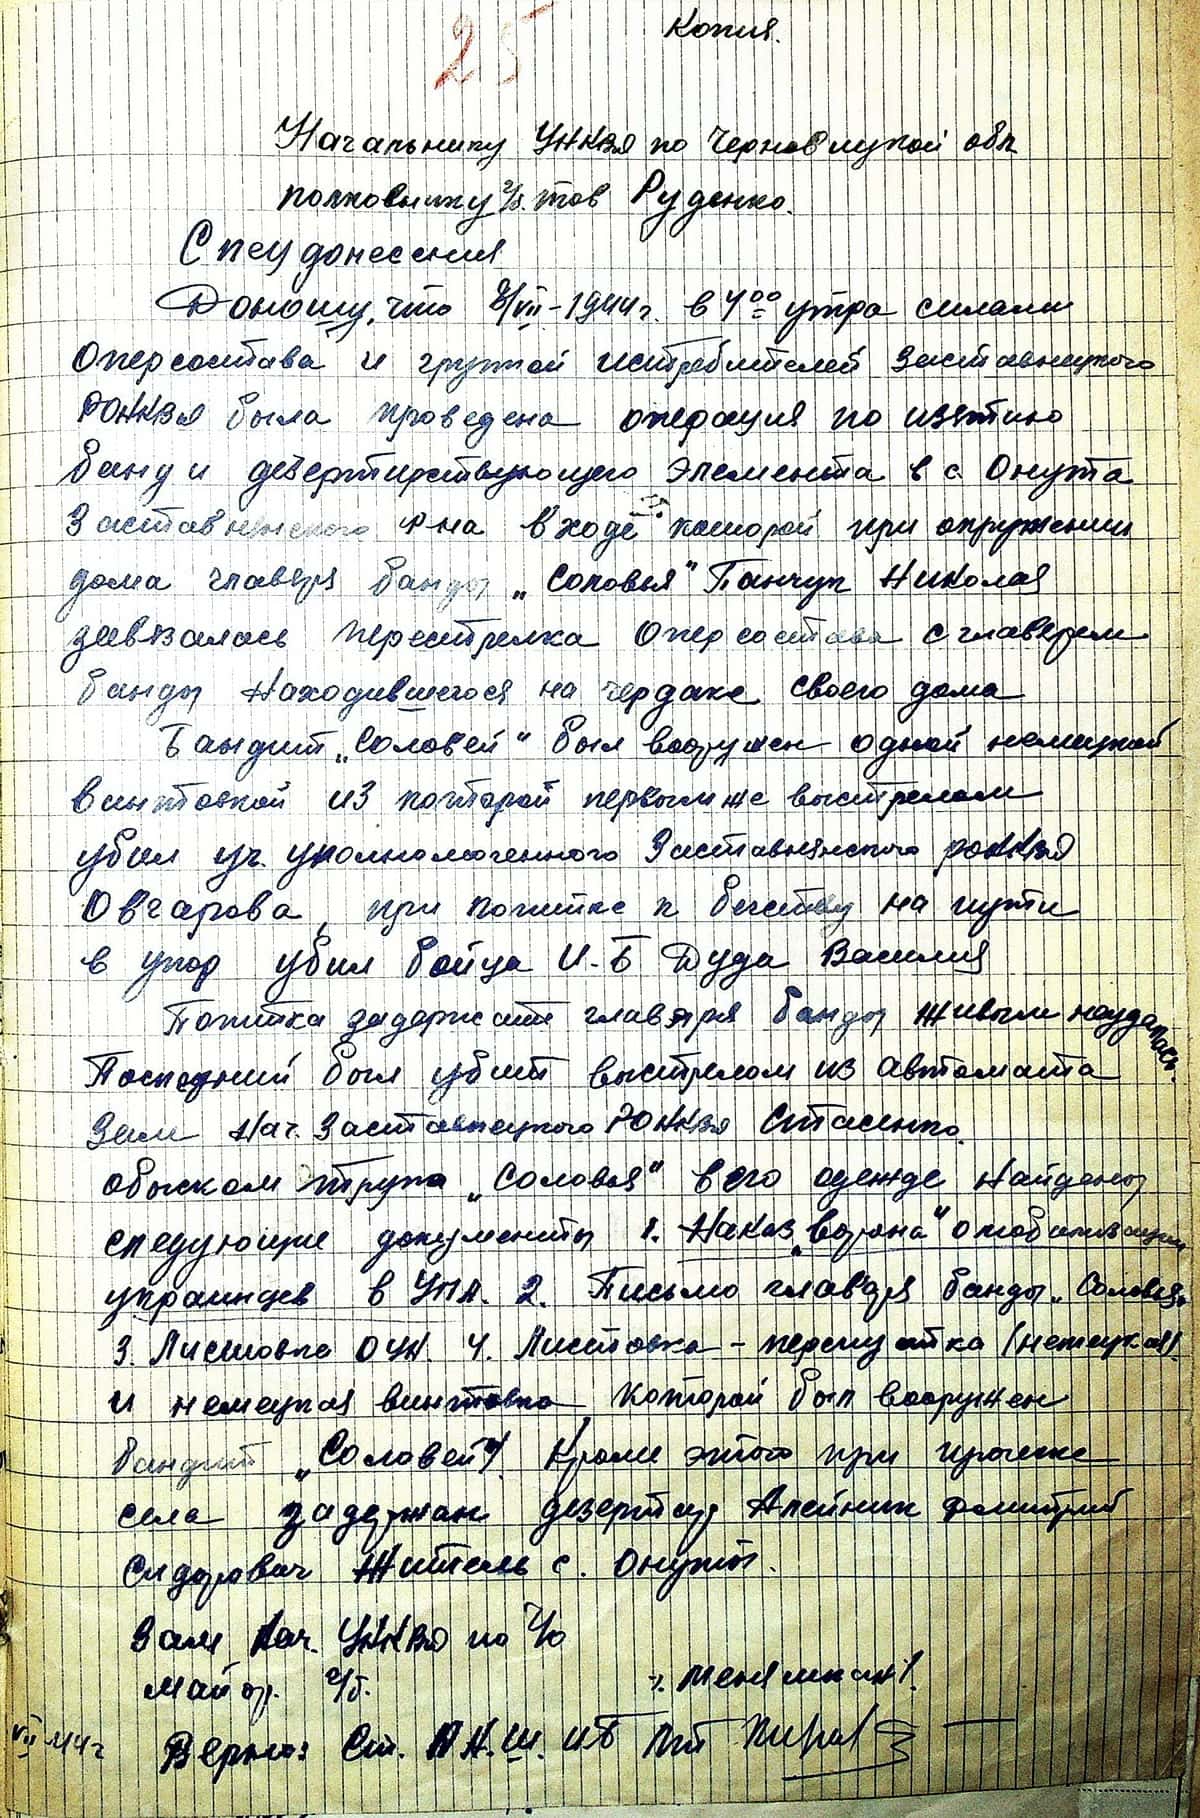 25
Копия.
Начальнику УНКВД по Черновицкой обл
полковнику г/б. тов Руденко.
Спецдонесения
Доношу, что 8/VII-1944г. в 4 00 утра силами
Оперсостава и групой истребителей Заставнецкого
РОНКВД была проведена операция по изятию
банд и дезертирствующего элемента в с. Онута
Заставненского р-на в ходе которой при окружении
дома главаря банды „Соловья" Панчук Николая
завязалась перестрелка Оперсостава с главарем
банды находившегося на чердаке своего дома
Бандит „Соловей" был вооружен одной немецкой
винтовкой из которой первым же выстрелом
убил уч. уполномоченного Заставнянского РОНКВД
Овчарова, при попитке к бегству на пути
в упор убил бойца И-Б Дуда Василия
Попитка задержать главаря банды живым неудалось.
Последний был убит выстрелом из автомата
Зам Нач. Заставнецкого РОНКВД Стасенко.
обыском трупа „Соловья" в его одежде найдены
следующие документы 1. Наказ „Ворона" о мобилизации
украинцев в УПА. 2. Письмо главаря банды „Соловья"
3. Листовка ОУН. 4. Листовка - перепустка (немецкая).
и немецкая винтовка которой был вооружен
бандит „Соловей". Кроме этого при прочёске
села задержан дезертир Алейник Дмитрий
Сидорович житель с. Онуты.
Зам Нач. УНКВД по Ч/о
Майор г/б.
VII 44г Верно: Ст. ПН.Ш. ИБ